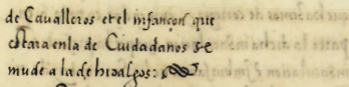 de Caualleros et el infançon que
estara en la de Cuidadanos se
mude a la de hidalgos: